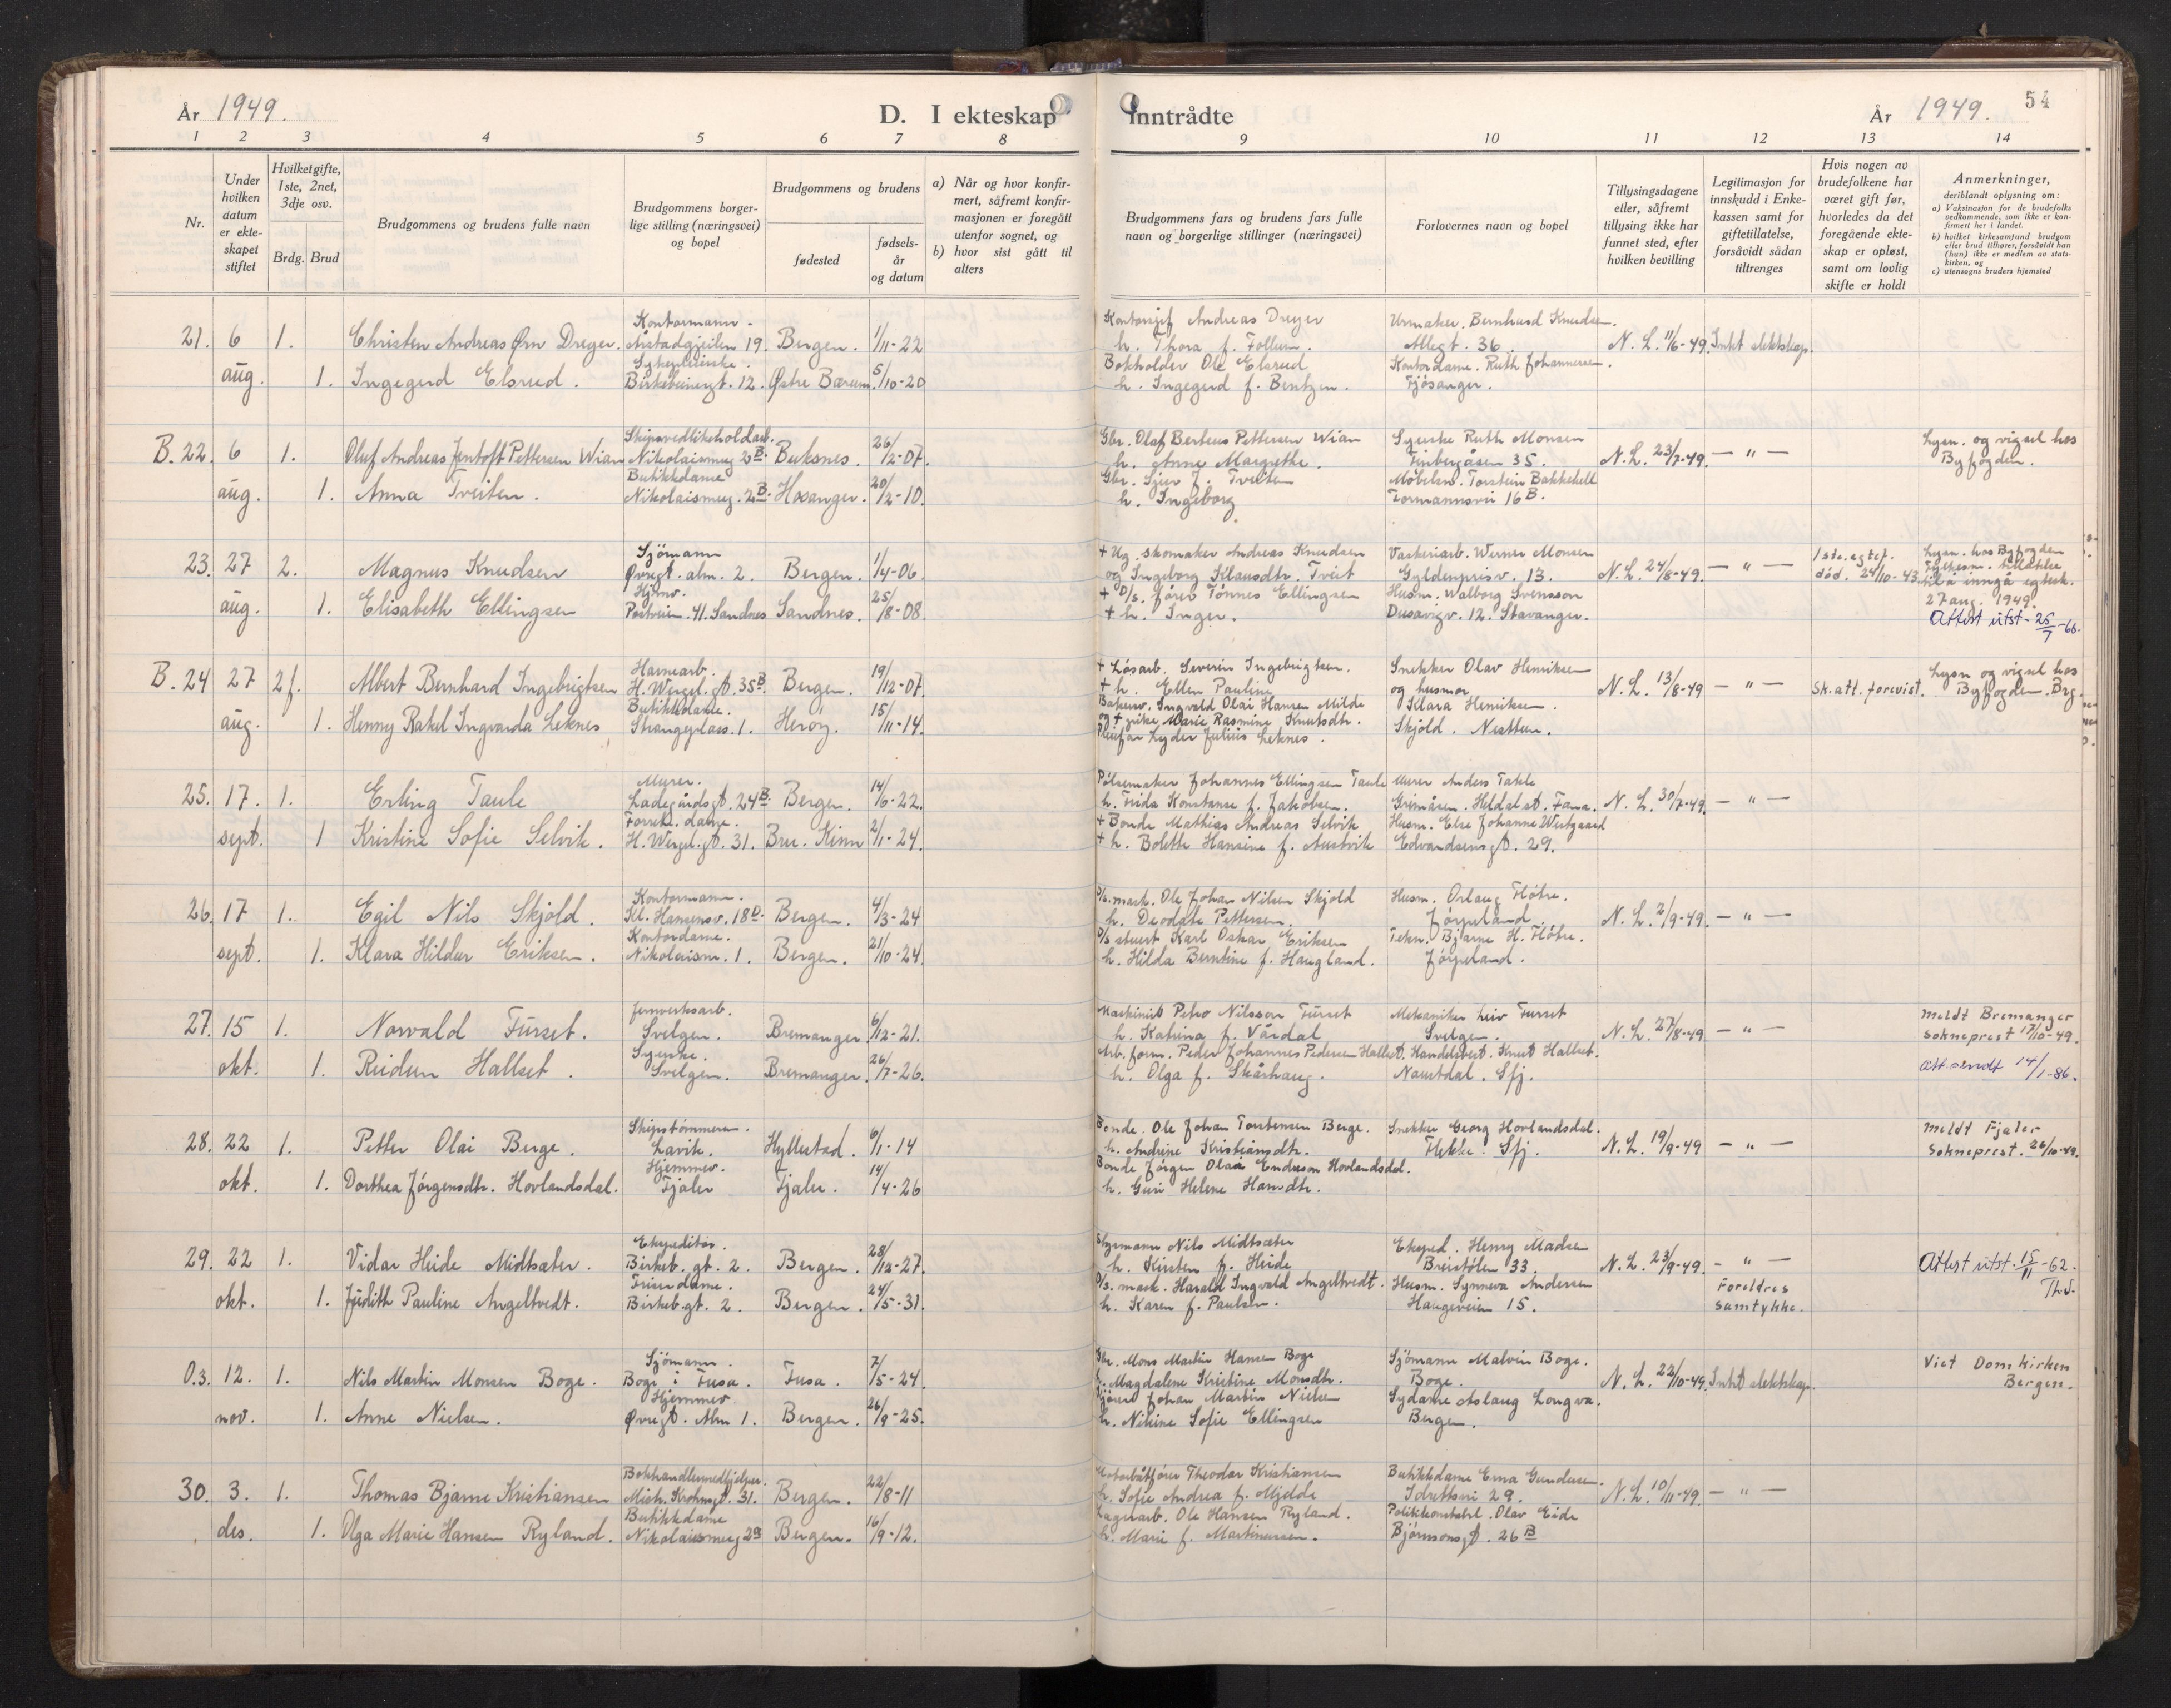 År 1949.
D. I ekteskap
inntrådte
År 1949.
54
1 2 3 4 5 6 7 8
9 10 11 12 13 14
Nr.
Under hvilken datum er ekteskapet stiftet
Hvilketgifte, 1ste, 2net, 3dje osv.
Brdg. Brud
Brudgommens og brudens fulle navn
Brudgommens borgerlige stilling (næringsvei) og bopel
Brudgommens og brudens
fødested
fødselsår og datum
a) Når og hvor konfirmert, såfremt konfirmasjonen er foregått utenfor sognet, og
b) hvor sist gått til alters
Brudgommens fars og brudens fars fulle navn og borgerlige stillinger (næringsvei)
Forlovernes navn og bopel
Tillysingsdagene eller, såfremt tillysing ikke har funnet sted, efter hvilken bevilling
Legitimasjon for innskudd i Enkekassen samt for giftetillatelse, forsåvidt sådan tiltrenges
Hvis nogen av brudefolkene har været gift før, hvorledes da det foregående ekteskap er opløst, samt om lovlig skifte er holdt
Anmerkninger,
deriblandt oplysning om:
a) Vaksinasjon for de brudefolks vedkommende, som ikke er konfirmert her i landet.
b) hvilket kirkesamfund brudgom eller brud tilhører, forsåvidt han (hun) ikke er medlem av statskirken, og
c) utensogns bruders hjemsted
21. 6 1. Christen Andreas Ørn Dreyer. Kontormann. Årstadgjeilen 19. Bergen. 1/11-22
aug. 1. Ingegerd Elsrud. Sykepleierske. Birkebeinergt. 12. Østre Bærum. 5/10-20
Kontorsjef Andreas Dreyer
h. Thora f. Follum.
Bokholder Ole Elsrud
h. Ingegerd f. Bentzen.
Urmaker. Bernhard Knudsen.
Allegt. 36.
Kontordame. Ruth Johannessen.
Fjøsanger.
N. L. 11/6-49. Inkt elektskap.
B. 22. 6 1. Oluf Andreas Jentoft Pettersen Wian Skipsvedlikeholdarb. Nikolaismug 2B. Buksnes. 26/2-07.
aug. 1. Anna Tveiten. Butikkdame Nikolaismug. 2B. Hosanger. 20/2-10.
Gbr. Olaf Berteus Pettersen Wian
h. Anne Margrethe.
Gbr. Sjur J. Tveiten
h. Ingeborg
Syerske Ruth Monsen
Finbergåsen 35.
Møbelsn. Torstein Bakkehell
Formannsvei 16B.
N. L. 23/7-49. — " —
Lysn. og vigsel hos
Byfogden.
23. 27 2. Magnus Knudsen Sjømann Øvregt. alm. 2. Bergen. 1/4-06.
aug. 1. Elisabeth Ellingsen Hjemv. Postveien. 41. Sandnes Sandnes. 25/8-08.
+ Ug. skomaker Andreas Knudsen
og Ingeborg Klausdtr. Tveit
+ D/s. fører Tønnes Ellingsen
+ h. Inger.
Vaskeriarb. Werner Monsen
Gyldenprisv. 13.
Husm. Walborg Svensson
Dusavigv. 12. Stavanger.
N. L. 24/8-49. — " —
1ste. egtef.
død. 24/10-43.
Lysn. hos Byfogden
Fylkesm. tillatelse
til å inngå egtesk.
27 aug. 1949.
Attest utst - 25/7-68.
B. 24 27 2f. Albert Bernhard Ingebrigtsen Havnearb. H. Wergel. gt. 35B. Bergen. 19/12-07.
aug. 1. Henny Rakel Ingvarda Leknes Butikkdame. Strangeplass. 1. Herøy. 15/11-14.
+ Løsarb. Severin Ingebrigtsen.
+ h. Ellen Pauline
Bakersv. Ingvald Olai Hansen Milde
og + pike Marie Rasmine Knutsdtr.
Pleiefar Lyder Julius Leknes.
Snekker Olav Henriksen
og husmor
Klara Henriksen.
Skjold. Nesttun.
N. L. 13/8-49 — " — Sk.att. forevist.
Lysn og vigsel hos
Byfogden. Brg.
25. 17. 1. Erling Taule Murer. Ladegårdsgt. 24B. Bergen. 14/6-22.
sept. 1 Kristine Sofie Selvik. Forretn. dame. H. Wergel. gt. 31. Bru. Kinn 2/1-24.
Pølsemaker Johannes Ellingsen Taule
h. Frida Konstanse f. Jakobsen.
+ Bonde Mathias Andreas Selvik
+ h. Bolette Hansine f. Austvik
Murer Anders Takle
Grimåsen. Heldal st. Fana.
Husm. Else Johanne Westgaard
Edvardsensgt. 29.
N. L. 30/7-49. — " —
26. 17 1. Egil Nils Skjold. Kontormann. Kl. Hanensv. 18D. Bergen. 4/3-24
sept. 1. Klara Hildur Eriksen. Kontordame. Nikolaism. 1. Bergen. 21/10-24.
D/s. mask. Ole Johan Nilsen Skjold
h. Deodate Pettersen.
D/s stuert Karl Oskar Eriksen
h. Hilda Berntine f. Haugland.
Husm. Orlaug Fløtre.
Jørpeland.
Tekn. Bjarne H. Fløtre.
Jørpeland.
N. L. 2/9-49. — " —
27. 15 1. Norvald Furset. Jernverksarb. Svelgen. Bremanger. 6/12-21.
okt. 1. Reidun Hallset. Syerske. Svelgen. Bremanger. 26/7-26.
Maskinist Petro Nilsson Furset
h. Katrina f. Vårdal
Arb. form. Peder Johannes Pedersen Hallset.
h. Olga f. Skårhaug.
Mekaniker Leiv Furset
Svelgen.
Handelsbest. Knut Hallset.
Naustdal. Sfj.
N. L. 27/8-49 — " —
Meldt Bremanger
Sokneprest 17/10-49.
Att. sendt 14/1-86.
28. 22 1. Petter Olai Berge. Skipstømmerm. Lavik. Hyllestad. 6/1-14
okt. 1. Dorthea Jørgensdtr. Hovlandsdal. Hjemmev. Fjaler Fjaler. 14/4-26
Bonde. Ole Johan Torstensen Berge.
h. Andrine Kristiansdtr.
Bonde Jørgen Olaa Endreson Hovlandsdal.
h. Guri Helene Hansdtr.
Snekker Georg Hovlandsdal.
Flekke. Sfj.
N. L. 19/9-49 — " —
Meldt Fjaler
Sokneprest. 26/10-49.
29. 22 1. Vidar Heide Midtsæter. Ekspeditør. Birkeb. gt. 2. Bergen. 28/12-27.
okt. 1. Judith Pauline Angeltvedt. Frisørdame. Birkeb. gt. 2. Bergen. 24/5-31.
Styrmann Nils Midtsæter
h. Kirsten f. Heide
D/s. mask. Harald Ingvald Angeltvedt.
h. Karen f. Paulsen.
Eksped. Henry Madsen
Breistølen 33.
Husm. Synneva Andersen
Haugeveien 15.
N. L. 23/9-49. - " —
Foreldres
samtykke.
Attest utst. 15/11-62.
Th.S.
O.3. 12. 1. Nils Martin Monsen Boge. Sjømann. Boge i Fusa. Fusa. 7/5-24.
nov. 1. Anne Nielsen. Hjemmev. Øvregt. Alm 1. Bergen. 26/9-25.
Gbr. Mons Martin Hansen Boge
h. Magdalene Kristine Monsdtr.
Sjåfør Johan Martin Nielsen
h. Nikine Sofie Ellingsen
Sjømann Malvin Boge.
Boge.
Sydame Aslaug Longva.
Bergen.
N. L. 22/10-49. Inkt elektskap.
Viet Domkirken
Bergen.
30. 3. 1. Thomas Bjarne Kristiansen Bokhandlermedhjelper. Mich. Krohnsgt. 31. Bergen. 22/8-11
des. 1. Olga Marie Hansen Ryland. Butikkdame Nikolaismug 2B Bergen. 16/9-12.
Motorbåtfører Theodor Kristiansen
h. Sofie Andrea f. Mjelde
Lagerarb. Ole Hansen Ryland.
h. Marie f. Martinussen.
Butikkdame Erna Gundersen.
Idrettsvei 29.
Politikonstabel. Olav Eide
Bjørnsonsgt. 26B
N. L. 10/11-49. — " —